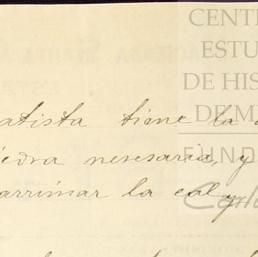 CENT
ESTU
DE HIS
DE M
FUND
Carlo
atista tiene la
edra nesesaria, y
arrimar la cal y